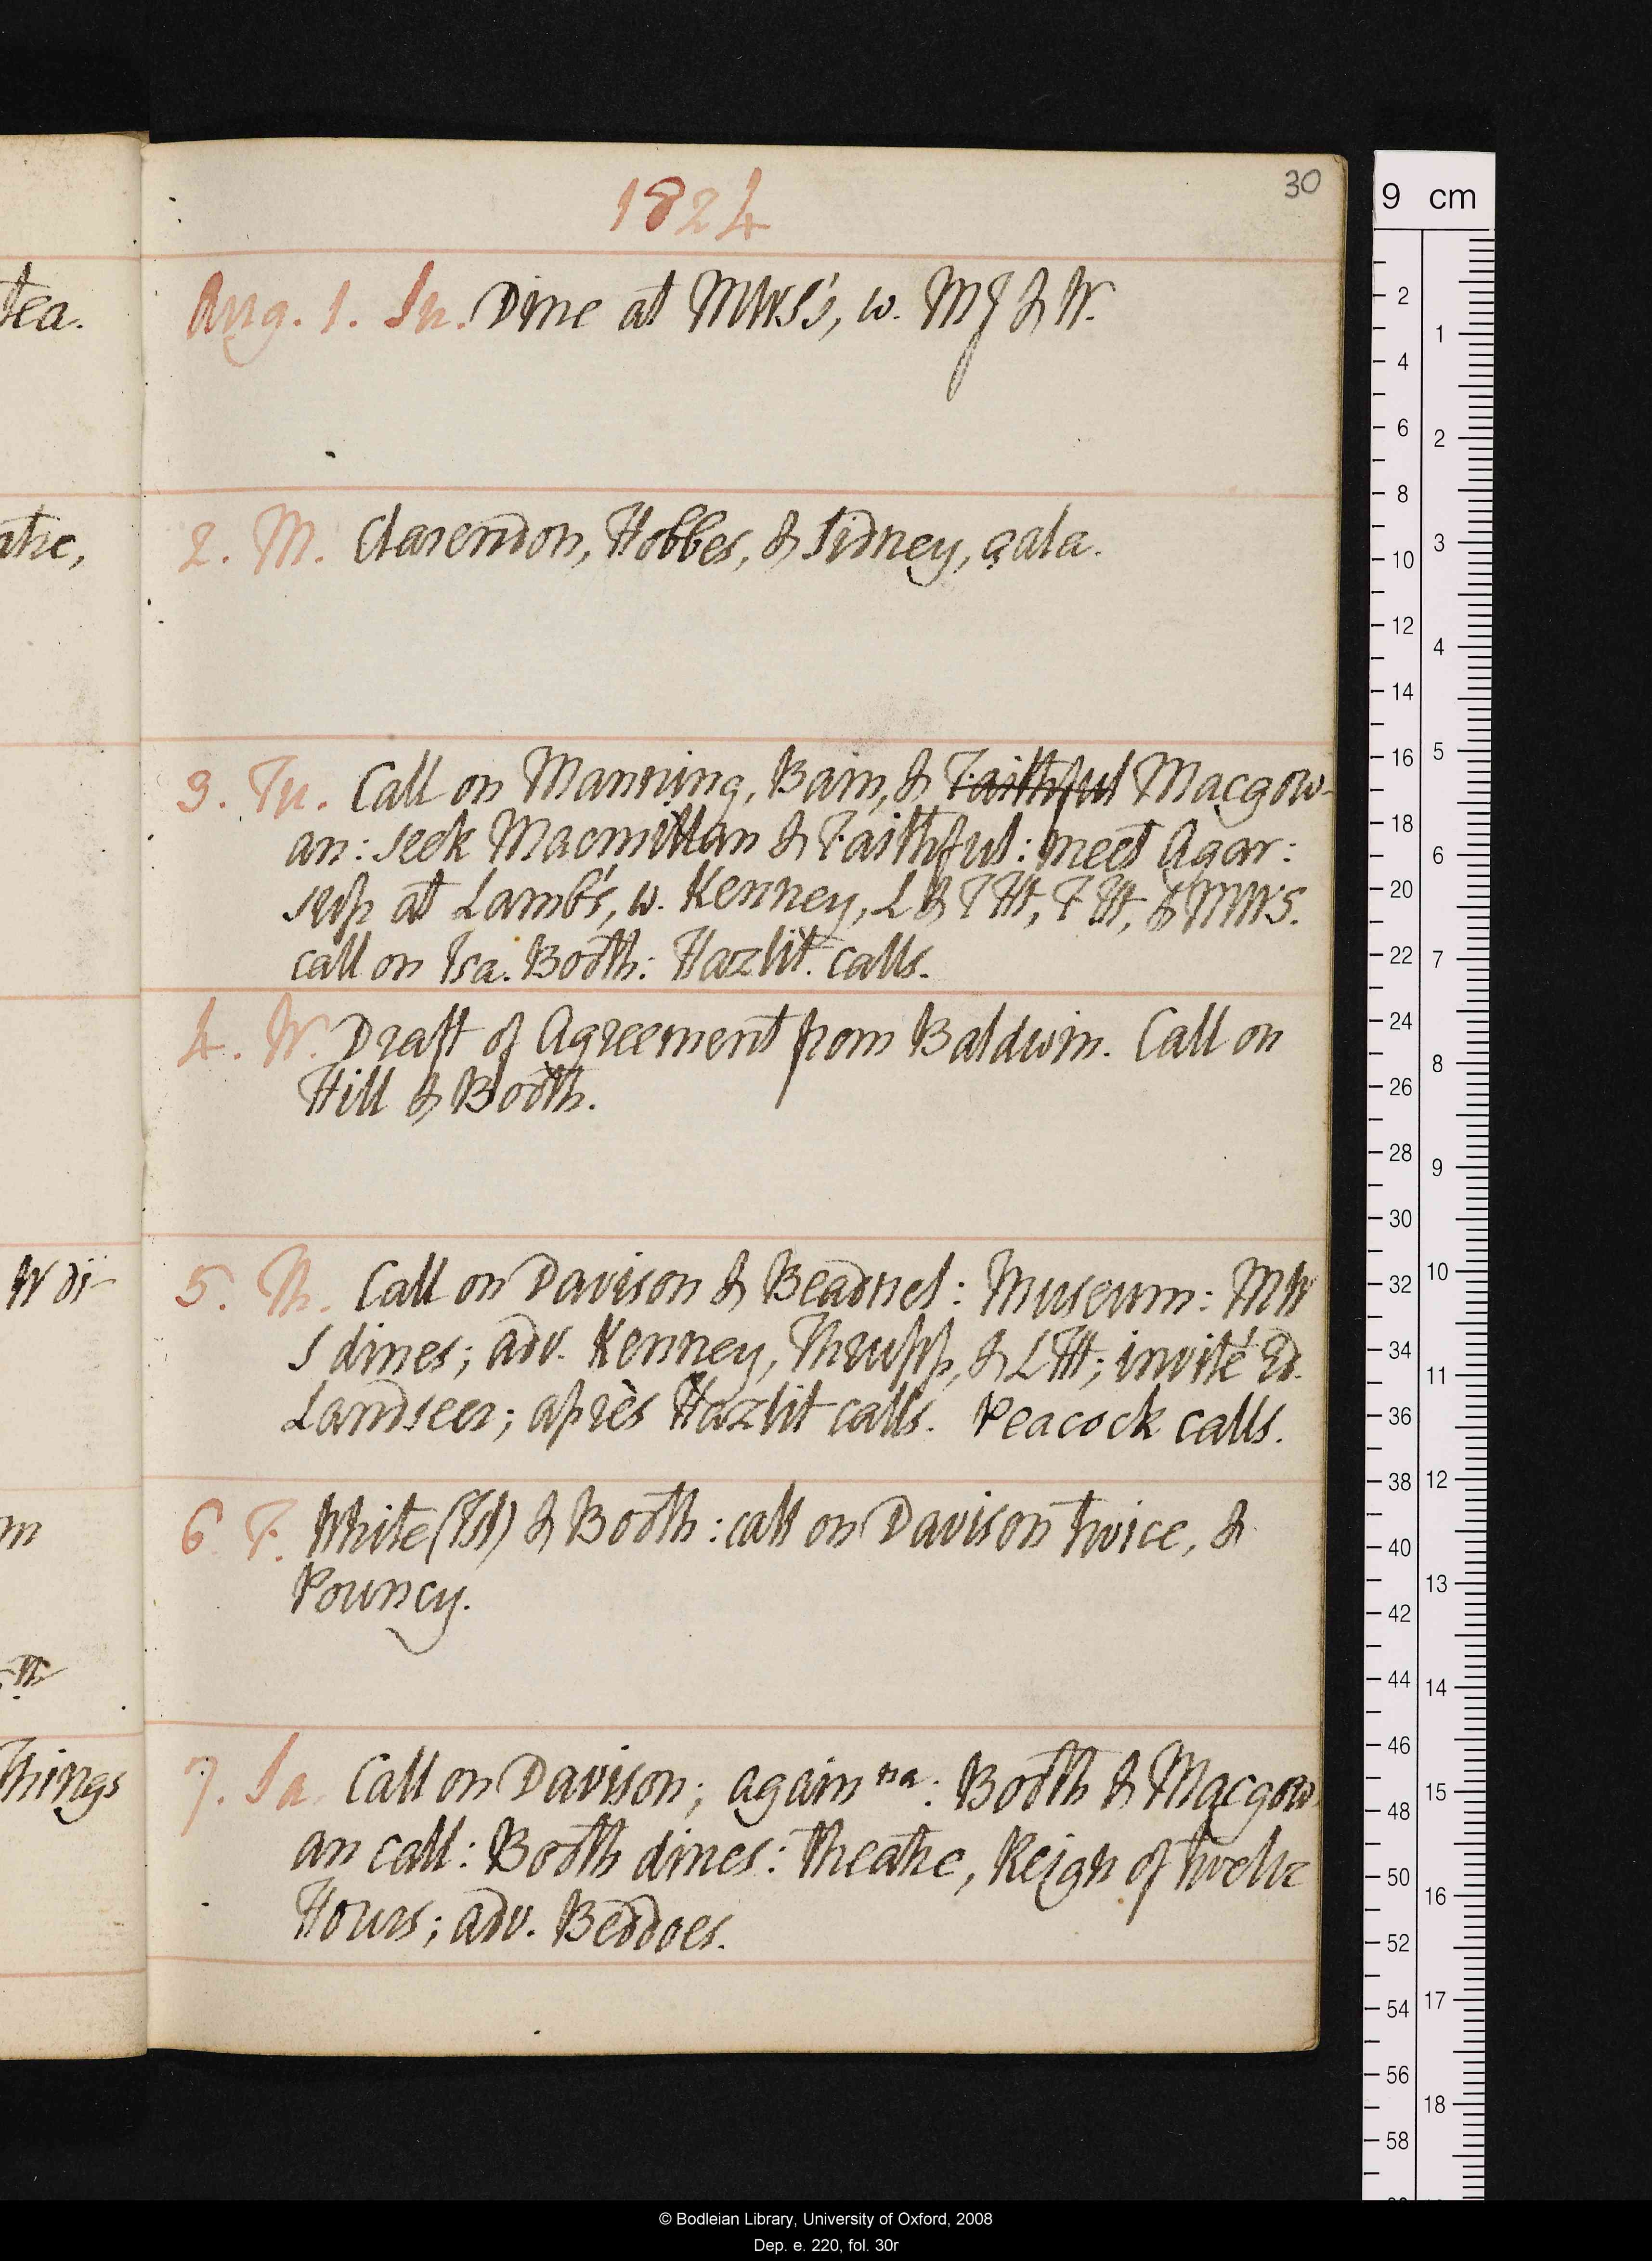 1824
30
Aug. 1. Su. Dine at MWS's, w. MJ & W.
2. M. Clarendon, Hobbes, & Sidney, çala.
3. Tu. Call on Manning, Bain, & Faithful Macgow-
an: seek Macmillan & Faithful: meet Agar:
sup at Lamb's, w. Kenney, L & T Ht, F Ht, & MWS.
call on Isa. Booth: Hazlit calls.
4. W. Draft of Agreement from Baldwin. Call on
Hill & Booth.
5. Th. Call on Davison & Beadnel: Museum: MW
S dines; adv. Kenney, Thrupp, & LHt; invité Ed.
Landseer; après Hazlit calls. Peacock calls.
6 F. White & Booth: call on Davison twice, &
Pouncy.
7. Sa. Call on Davison; again na: Booth & Macgow
an call: Booth dines: theatre, Reign of twelve
Hours; adv. Beddoes.
tea.
atre,
W di-
m
Things
9 cm
2
4
6
8
10
12
14
16
18
20
22
24
26
28
30
32
34
36
38
40
42
44
46
48
50
52
54
56
58
1
2
3
4
5
6
7
8
9
10
11
12
13
14
15
16
17
18
© Bodleian Library, University of Oxford, 2008
Dep. e. 220, fol. 30r